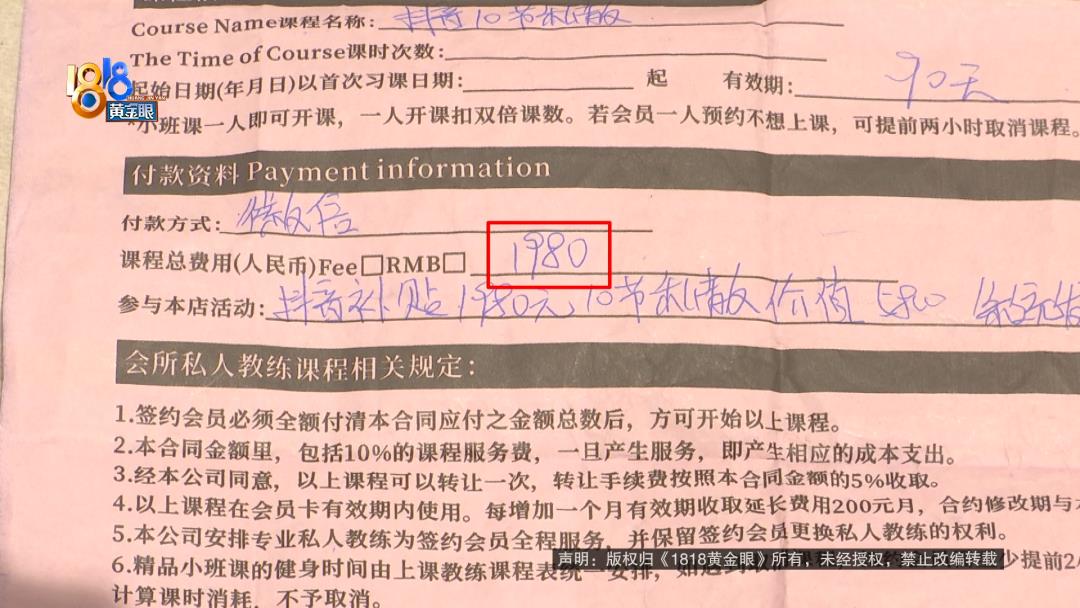 Course Name课程名称：抖音10节私教
The Time of Course课时次数：
起始日期(年月日)以首次习课日期： 起 有效期：90天
*小班课一人即可开课，一人开课扣双倍课数。若会员一人预约不想上课，可提前两小时取消课程。
1818
黄金眼
付款资料 Payment information
付款方式：微信
课程总费用(人民币)Fee□RMB□ 1980
参与本店活动：抖音补贴1980元，10节私教 价值580
会所私人教练课程相关规定：
1.签约会员必须全额付清本合同应付之金额总数后，方可开始以上课程。
2.本合同金额里，包括10%的课程服务费，一旦产生服务，即产生相应的成本支出。
3.经本公司同意，以上课程可以转让一次，转让手续费按照本合同金额的5%收取。
4.以上课程在会员卡有效期内使用。每增加一个月有效期收取延长费用200元月，合约修改期与
5.本公司安排专业私人教练为签约会员全程服务，并保留签约会员更换私人教练的权利。
6.精品小班课的健身时间由上课教练课程表统一安排，如 少提前2
声明：版权归《1818黄金眼》所有，未经授权，禁止改编转载
计算课时消耗，不予取消。